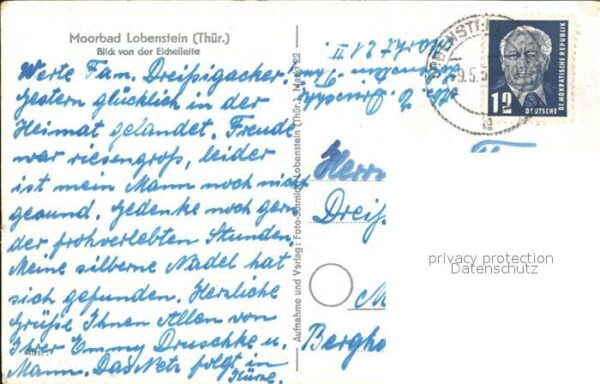 Moorbad Lobenstein (Thür.)
Blick von der Eichelleite
Werte Fam. Dreißigacker.
Gestern glücklich in der
Heimat gelandet. Freude
war riesengroß, leider
ist mein Mann noch nicht
gesund. Gedenke noch gern
der frohverlebten Stunden.
Meine silberne Nadel hat
sich gefunden. Herzliche
Grüße Ihnen Allen von
Ihrer Emmy Druschke u.
Mann. Das Netz folgt in
Kürze.
Aufnahme und Verlag: Foto-Schmidt, Lobenstein (Thür.)
LOBENSTEI
9.5.5
12
DEUTSCHE
DEMOKRATISCHE REPUBLIK
Herrn
Dreiß
M
Bergho
privacy protection
Datenschutz